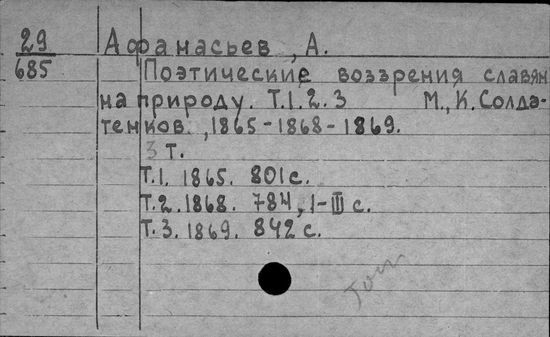 29
685
Афанасьев, А.
Поэтические воззрения славян
на природу. Т.1.2.3 М., К. Солда-
тенков., 1865-1868-1869.
3 т.
Т.1. 1865. 801 с.
Т.2. 1868. 784, I-III с.
Т.3. 1869. 842 с.